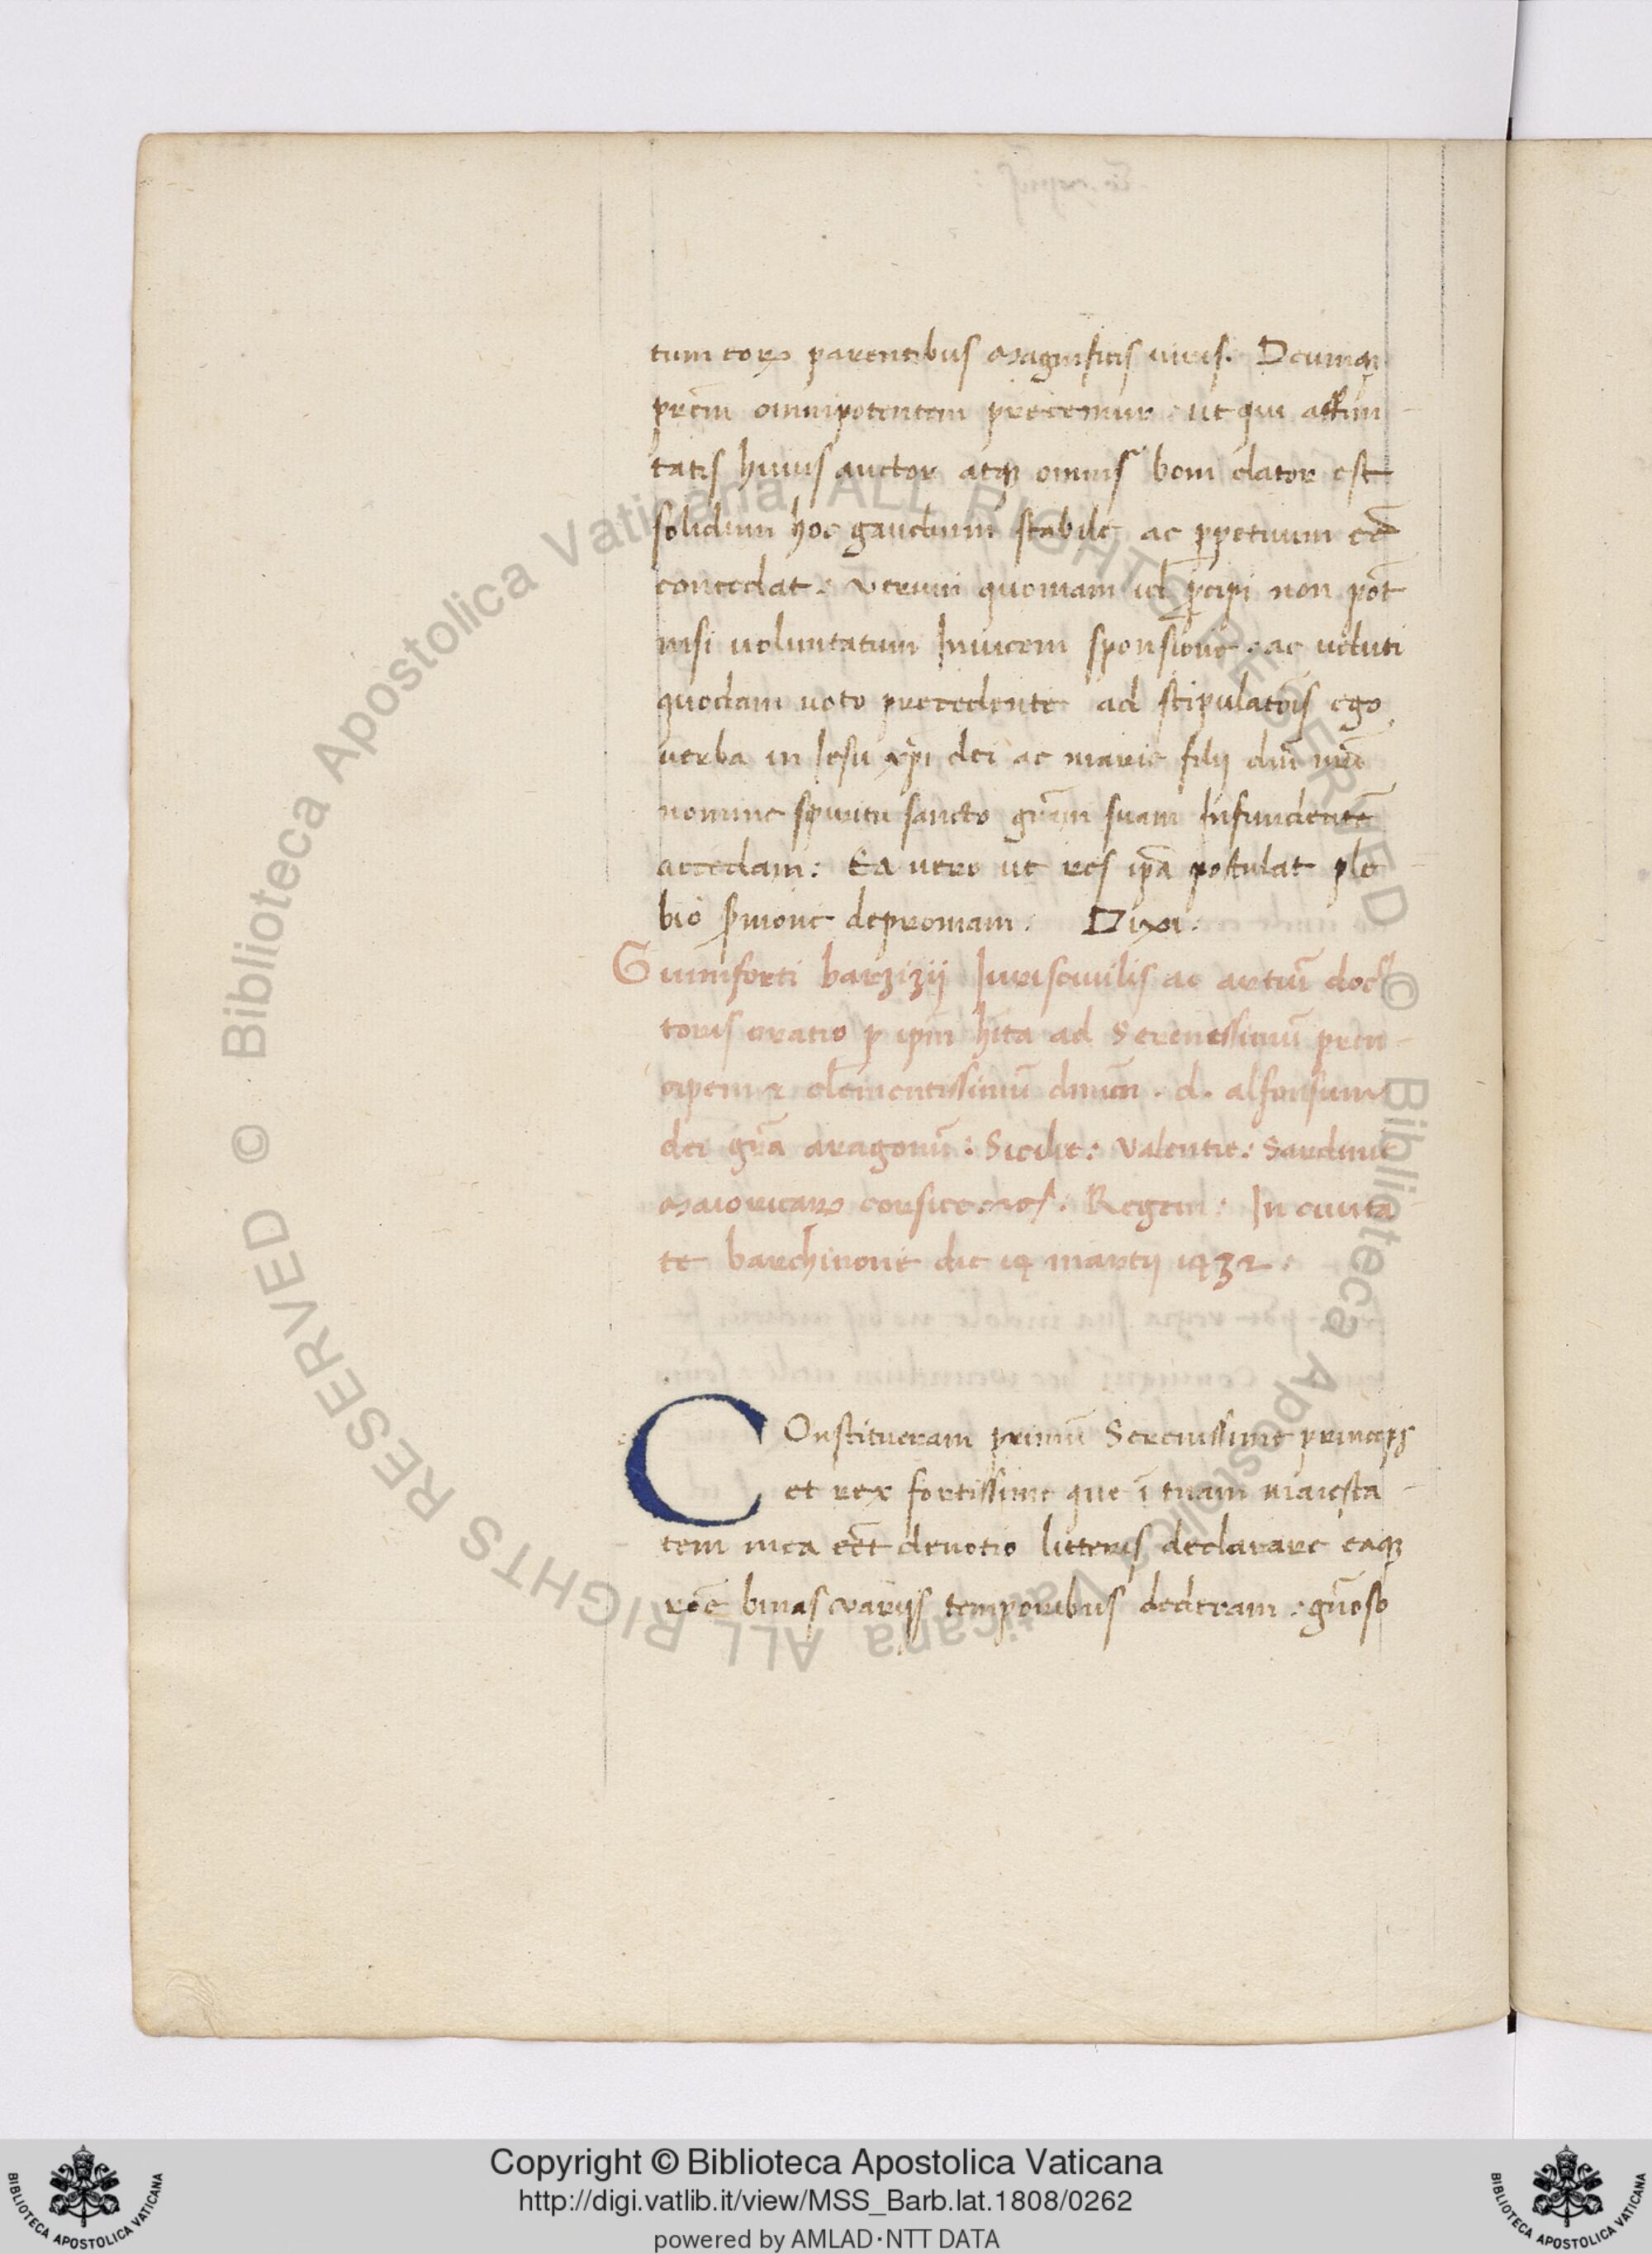 tum eoꝝ parentibus Magnificis uiris. Deumqꝫ
pr̄em omnipotentem precemur: ut qui affini-
tatis huius auctor atqꝫ omnis boni dator est
solidum hoc gaudium stabile ac ꝑpetuum eē
concedat: Verum quoniam id ꝑcipi non pōt
nisi uoluntatum Inuicem sponsione: ac ueluti
quodam uoto precedente ad stipulatōis ego
uerba in Iesu xp̄i dei ac marie filij dn̄i nr̄i
nomine spiritu sancto gr̄am suam Infundente
accedam: Ea uero ut res ip̄a postulat ple
bio ẜmone depromam. Dixi.
Guiniforti barzizij Iuriscivilis ac artiū doc
toris oratio ꝑ ip̄m h̄ita ad Serenissimū prin-
cipem ⁊ clementissimū dn̄um . d. alfonsum
dei gr̄a aragonū: Sicilie: Valentie: Sardinie
Maioricaꝝ corsice. Regem: In ciuita
te barchinone die 14 martij 1432.
COnstitueram primū Serenissime princeps
et rex fortissime que ī tuam maiesta-
tem mea eēt deuotio litteris declarare eaqꝫ
rōe binas varijs temporibus dederam:
Copyright © Biblioteca Apostolica Vaticana
http://digi.vatlib.it/view/MSS_Barb.lat.1808/0262
powered by AMLAD·NTT DATA
BIBLIOTECA APOSTOLICA VATICANA
BIBLIOTECA APOSTOLICA VATICANA
© Biblioteca Apostolica Vaticana ALL RIGHTS RESERVED
© Biblioteca Apostolica Vaticana ALL RIGHTS RESERVED